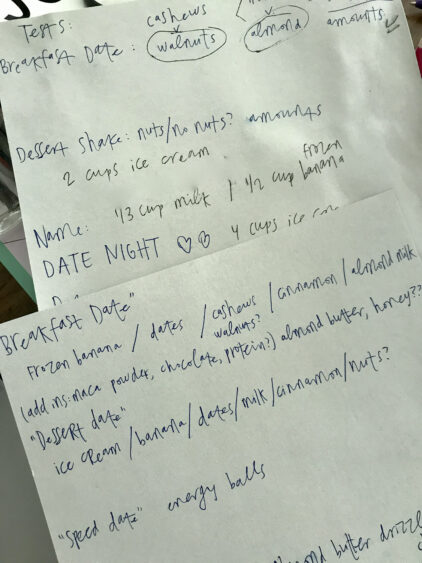 Tests:
cashews
Breakfast Date: walnuts almond amounts
Dessert Shake: nuts/no nuts? amounts
2 cups ice cream
frozen
Name: 1/3 cup milk / 1/2 cup banana
DATE NIGHT ♡♡ 4 cups ice
Breakfast Date"
Frozen banana / dates / cashews / cinnamon / almond milk
walnuts?
(add ins: maca powder, chocolate, protein?) almond butter, honey??
"Dessert date"
ice cream / banana / dates / milk / cinnamon / nuts?
"Speed date" energy balls
almond butter drizzle